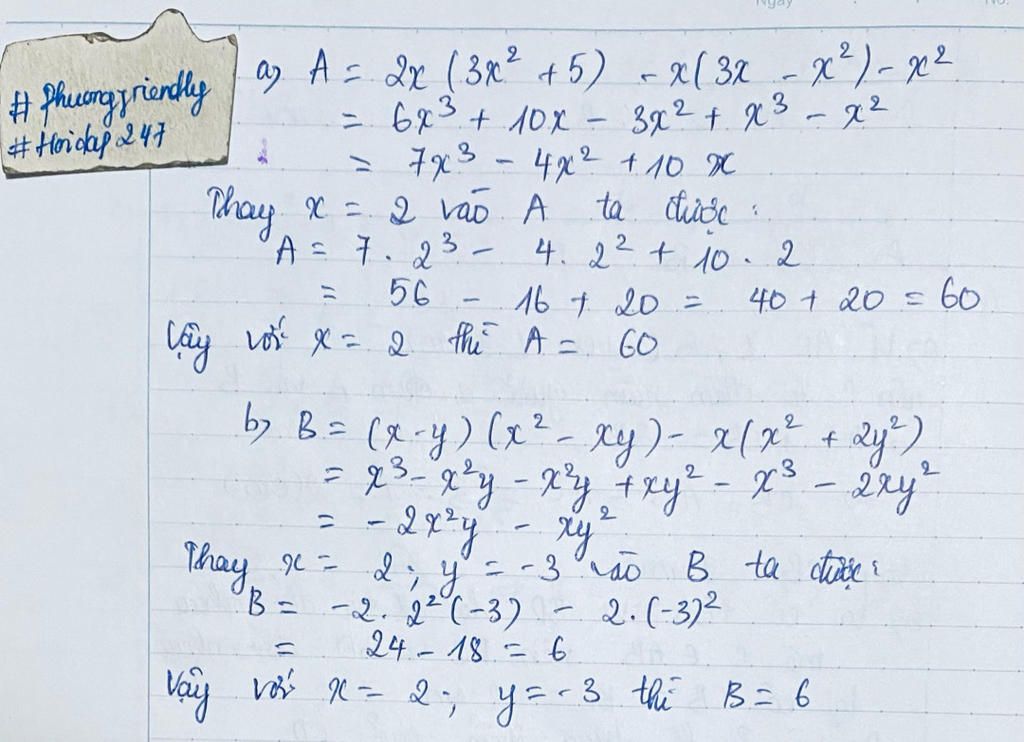 Ngày
No.
# Phuongfriendly
# Hoidap 247
a) A = 2x (3x² + 5) - x(3x - x²) - x²
= 6x³ + 10x - 3x² + x³ - x²
= 7x³ - 4x² + 10 x
Thay x = 2 vào A ta được :
A = 7 . 2³ - 4. 2² + 10 . 2
= 56 - 16 + 20 = 40 + 20 = 60
Vậy với x = 2 thì A = 60
b) B = (x - y) (x² - xy) - x(x² + 2y²)
= x³ - x²y - x²y + xy² - x³ - 2xy²
= - 2x²y - xy²
Thay x = 2 ; y = -3 vào B ta được :
B = -2. 2² (-3) - 2. (-3)²
= 24 - 18 = 6
Vậy với x = 2 ; y = -3 thì B = 6